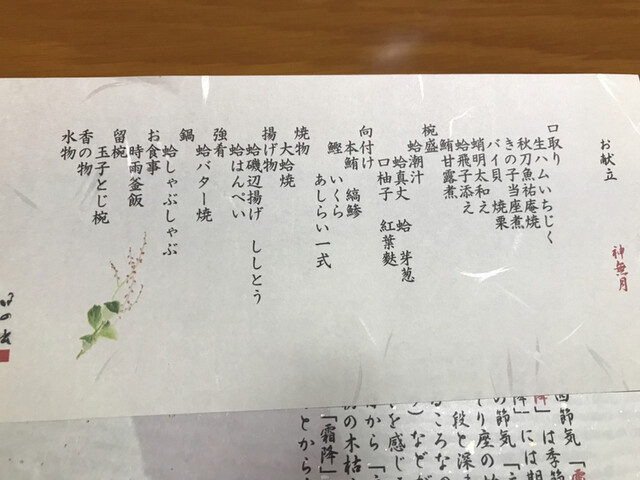 お献立
神無月
口取り
生ハムいちじく
秋刀魚祐庵焼
きの子当座煮
バイ貝 焼栗
蛸明太和え
蛤飛子添え
鮪甘露煮
椀盛
蛤潮汁
蛤真丈 蛤 芽葱
口柚子 紅葉麩
向付け
本鮪 縞鯵
鰹 いくら
あしらい一式
焼物
大蛤焼
揚げ物
蛤磯辺揚げ ししとう
蛤はんぺい
強肴
蛤バター焼
鍋
蛤しゃぶしゃぶ
お食事
時雨釜飯
留椀
玉子とじ椀
香の物
水物
四節気「霜
降」は季節
降」には期
の節気「立
り座の
段と深ま
ころなの
」などが
を感じ
から「
初の木枯
「霜降」
とから